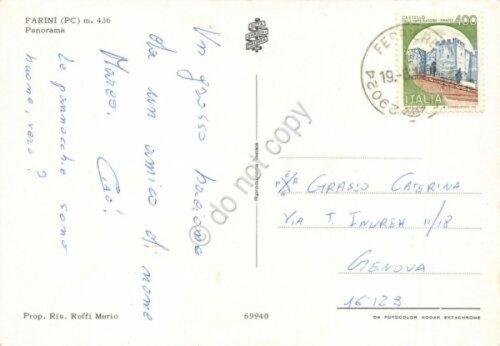 FARINI (PC) m. 436
Panorama
Un grosso bacione
da un amico di nome
Marco. Ciao!
Le pannocchie sono
buone, vero?
Prop. Ris. Roffi Mario
69940
Riproduzione Vietata
CASTELLO
400
ITALIA
19.
24
2906
GRASSO CATERINA
VIA T. INVREA 11/18
GENOVA
16129
DA FOTOCOLOR KODAK EKTACHROME
do not copy